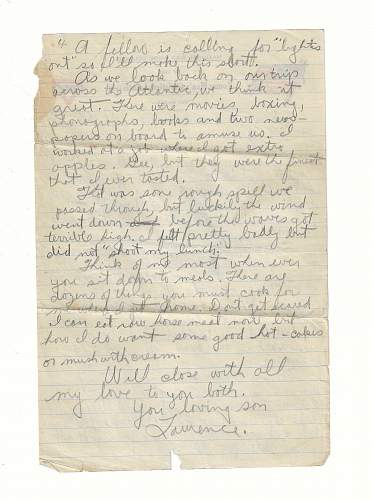 4. A fellow is calling for "lights
out" so I'll make this short.
As we look back on our trip
across the Atlantic, we think it
great. There were movies, boxing,
phonographs, books and two news-
papers on board to amuse us. I
worked at a job where I got extra
apples. Gee, but they were the finest
that I ever tasted.
That was some rough spell we
passed through, but luckily the wind
went down before the waves got
terrible high. I felt pretty badly but
did not shoot my lunch.
Think of me most when ever
you sit down to meals. There are
dozens of things you must cook for
me when I get home. Don't get scared
I can eat raw horse meat now but
how I do want some good hot-cakes
or mush with cream.
Will close with all
my love to you both.
You loving son
Laurence.